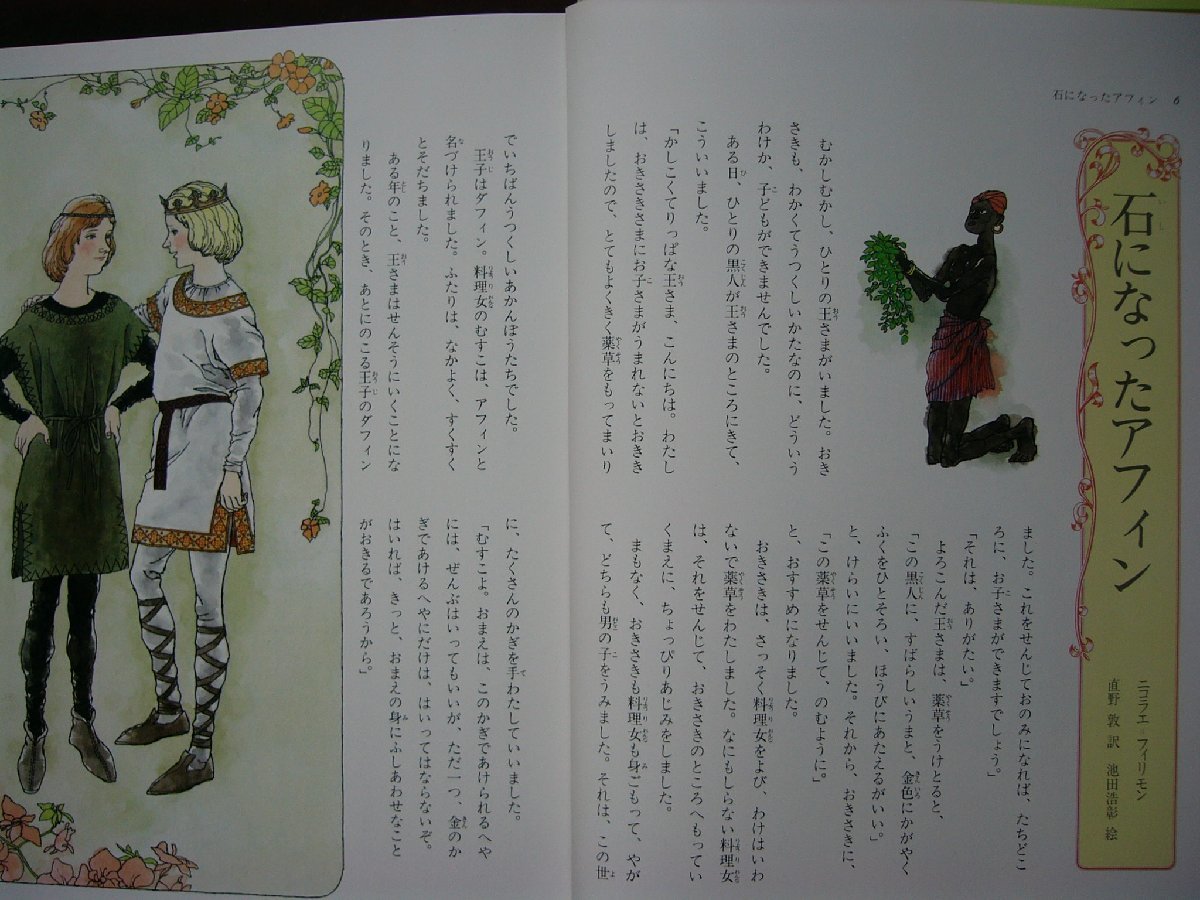 石になったアフィン 6
石になったアフィン
ニコラエ＝フィリモン
直野 敦 訳 池田浩彰 絵
むかしむかし、ひとりの王さまがいました。おき
さきも、わかくてうつくしいかたなのに、どういう
わけか、子どもができませんでした。
ある日、ひとりの黒人が王さまのところにきて、
こういいました。
「かしこくてりっぱな王さま、こんにちは。わたし
は、おきさきさまにお子さまがうまれないとおきき
しましたので、とてもよくきく薬草をもってまいり
ました。これをせんじておのみになれば、たちどこ
ろに、お子さまができますでしょう。」
「それは、ありがたい。」
よろこんだ王さまは、薬草をうけとると、
「この黒人に、すばらしいうまと、金色にかがやく
ふくをひとそろい、ほうびにあたえるがいい。」
と、けらいにいいました。それから、おきさきに、
「この薬草をせんじて、のむように。」
と、おすすめになりました。
おきさきは、さっそく料理女をよび、わけはいわ
ないで薬草をわたしました。なにもしらない料理女
は、それをせんじて、おきさきのところへもってい
くまえに、ちょっぴりあじみをしました。
まもなく、おきさきも料理女も身ごもって、やが
て、どちらも男の子をうみました。それは、この世
でいちばんうつくしいあかんぼうたちでした。
王子はダフィン。料理女のむすこは、アフィンと
名づけられました。ふたりは、なかよく、すくすく
とそだちました。
ある年のこと、王さまはせんそうにいくことにな
りました。そのとき、あとにのこる王子のダフィン
に、たくさんのかぎを手わたしていいました。
「むすこよ。おまえは、このかぎであけられるへや
には、ぜんぶはいってもいいが、ただ一つ、金のか
ぎであけるへやにだけは、はいってはならないぞ。
はいれば、きっと、おまえの身にふしあわせなこと
がおきるであろうから。」